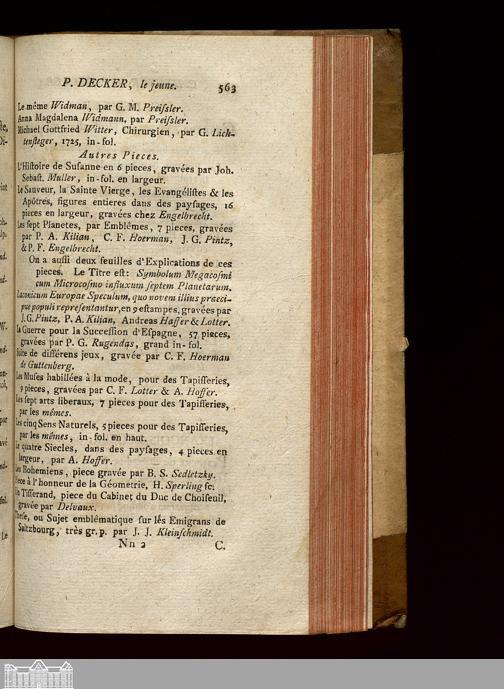 P. DECKER, le jeune. 563
Le même Widman, par G. M. Preiſsler.
Anna Magdalena Widmann, par Preiſsler.
Michael Gottfried Witter, Chirurgien, par G. Lich-
tenſteger, 1725, in-fol.
Autres Pieces.
L'Hiſtoire de Suſanne en 6 pieces, gravées par Joh.
Sebaſt. Muller, in-fol. en largeur.
Le Sauveur, la Sainte Vierge, les Evangéliſtes & les
Apôtres, figures entieres dans des payſages, 16
pieces en largeur, gravées chez Engelbrecht.
Les ſept Planetes, par Emblêmes, 7 pieces, gravées
par P. A. Kilian, C. F. Hoerman, J. G. Pintz,
& P. F. Engelbrecht.
On a auſſi deux feuilles d'Explications de ces
pieces. Le Titre eſt: Symbolum Megacoſmi
cum Microcoſmo influxum ſeptem Planetarum.
Laconicum Europae Speculum, quo novem illius praeci-
pue populi repreſentantur, en 9 eſtampes, gravées par
J. G. Pintz, P. A. Kilian, Andreas Haffer & Lotter.
La Guerre pour la Succeſſion d'Eſpagne, 57 pieces,
gravées par P. G. Rugendas, grand in-fol.
Suite de différens jeux, gravée par C. F. Hoerman
de Guttenberg.
Les Muſes habillées à la mode, pour des Tapiſſeries,
9 pieces, gravées par C. F. Lotter & A. Hoffer.
Les ſept arts liberaux, 7 pieces pour des Tapiſſeries,
par les mêmes.
Les cinq Sens Naturels, 5 pieces pour des Tapiſſeries,
par les mêmes, in-fol. en haut.
Le quatre Siecles, dans des payſages, 4 pieces en
largeur, par A. Hoffer.
Les Bohemiens, piece gravée par B. S. Sedletzky.
Piece à l'honneur de la Géometrie, H. Sperling ſc.
Un Tiſſerand, piece du Cabinet du Duc de Choiſeuil,
gravée par Delvaux.
Theſe, ou Sujet emblématique ſur lés Emigrans de
Saltzbourg, très gr. p. par J. J. Kleinſchmidt.
Nn 2 C.